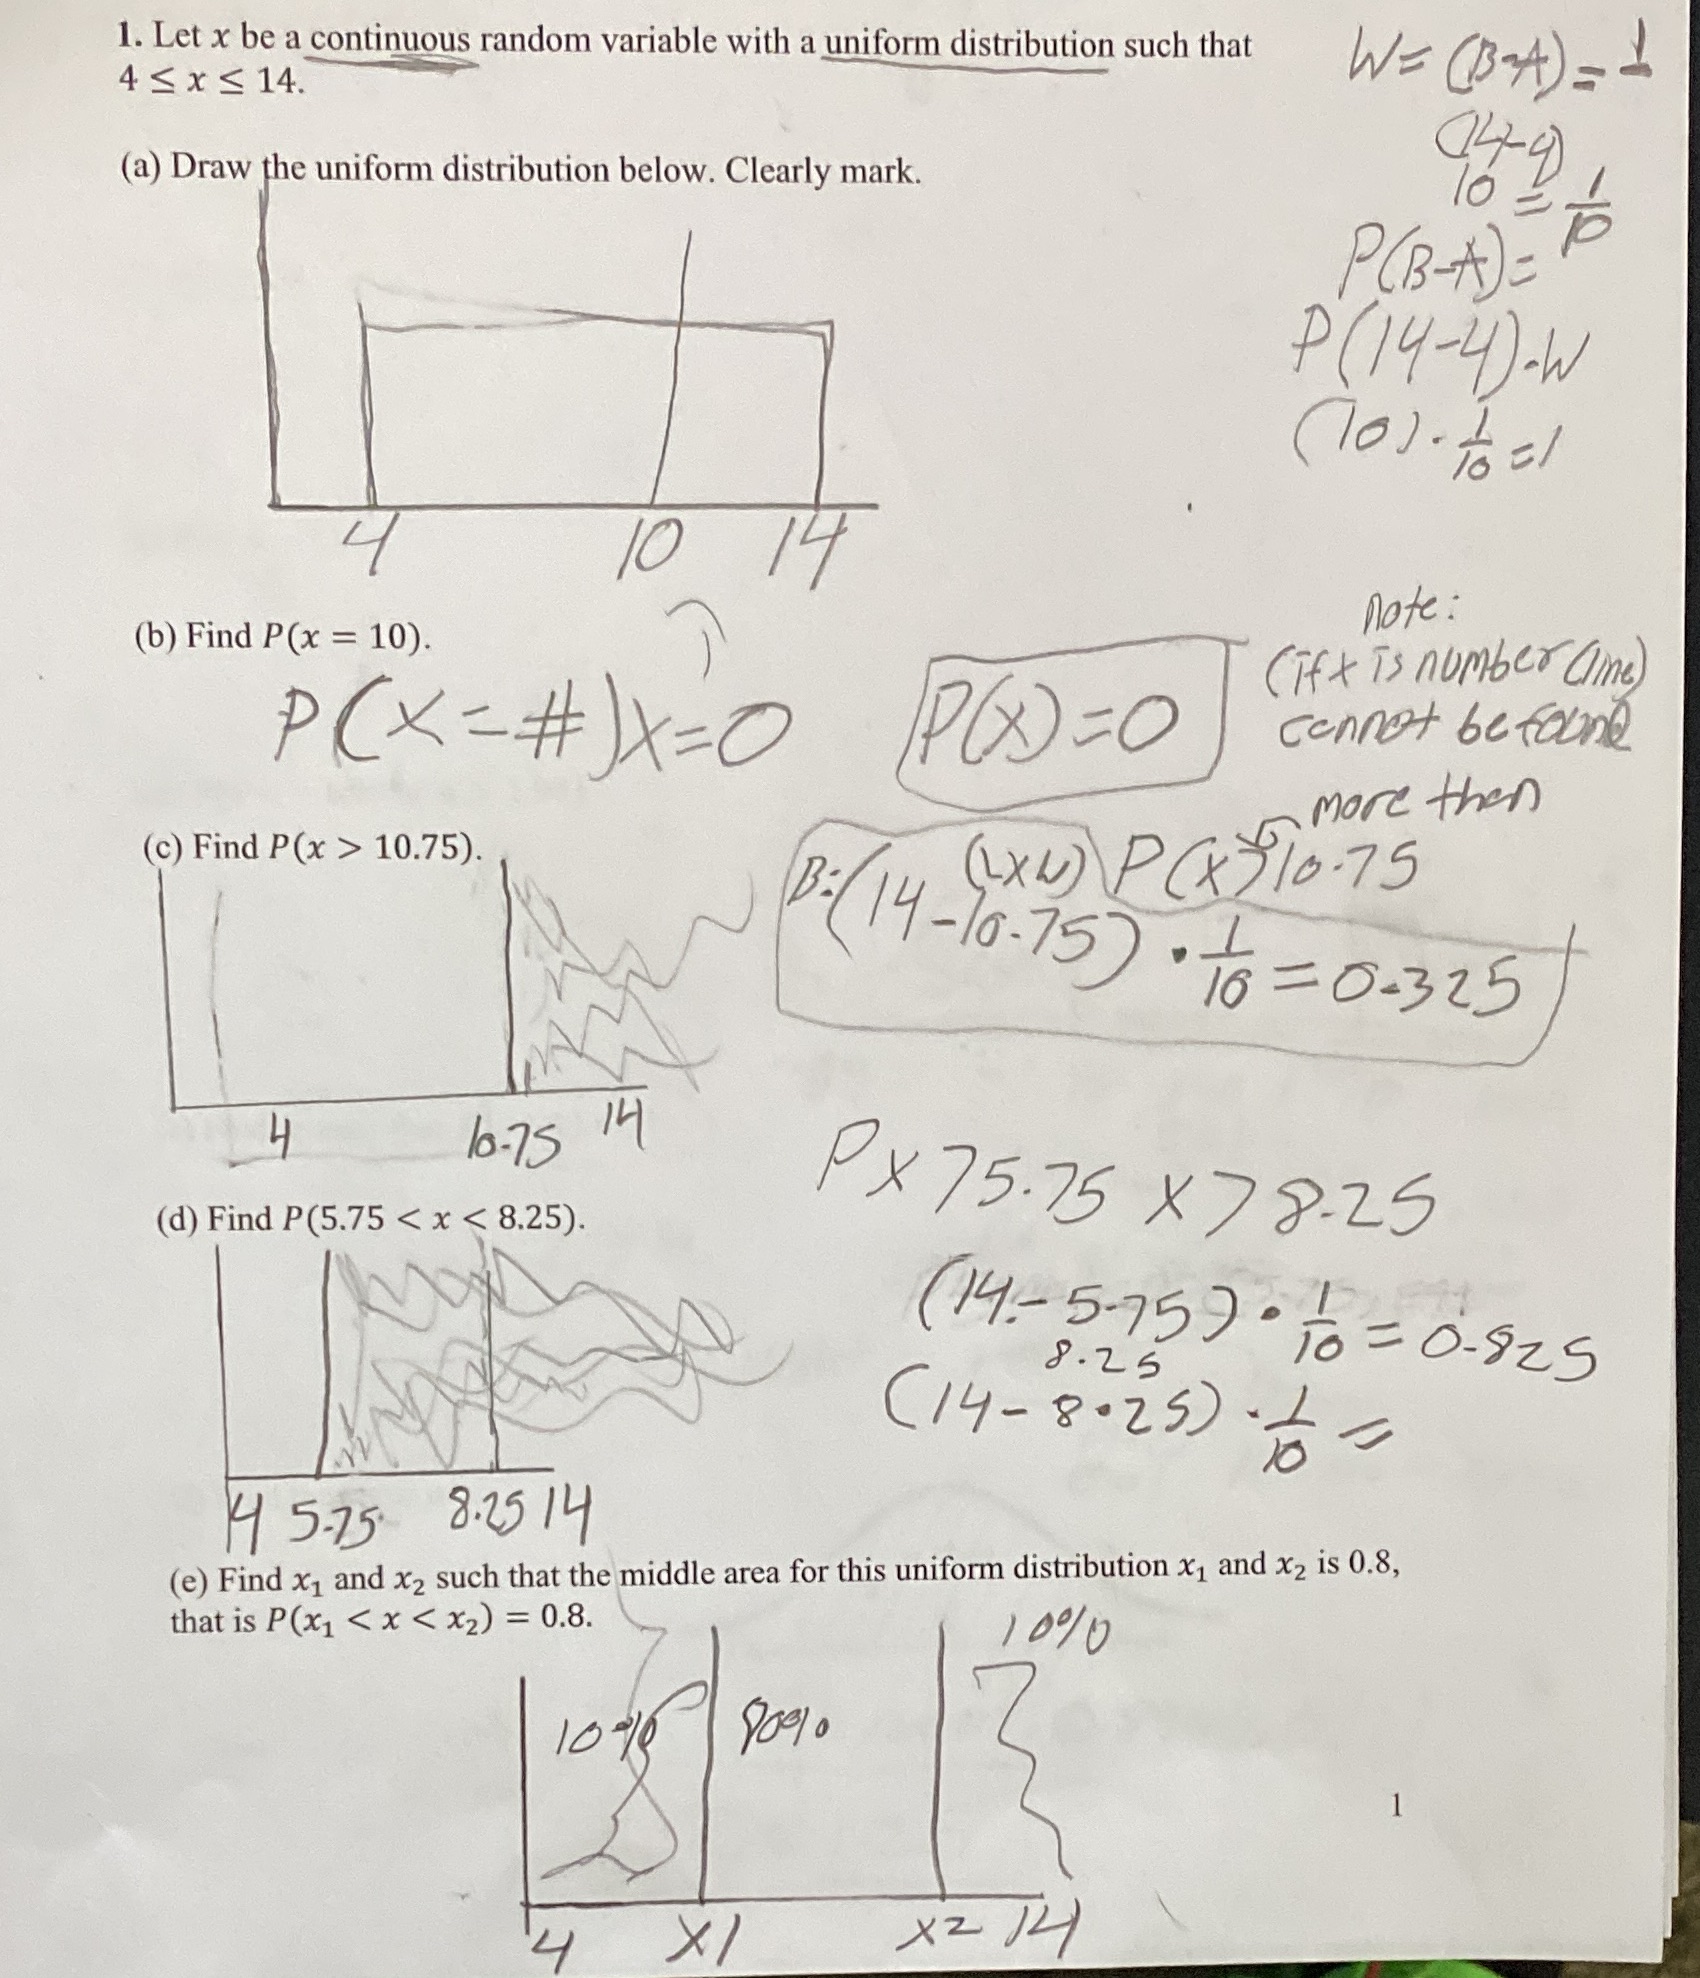 1. Let x be a continuous random variable with a uniform distribution such that
4 ≤ x ≤ 14.
W = (B-A) = 1
(14-4)
10 = 1/10
P(B-A) =
P(14-4)·W
(10)·1/10 = 1
(a) Draw the uniform distribution below. Clearly mark.
4 10 14
(b) Find P(x = 10).
P(X=#)X=0
P(X)=0
note:
(if x is number line)
cannot be found
(c) Find P(x > 10.75).
more then
(LXW) P(X>10.75
B:(14-10.75)·1/10 = 0.325
4 10.75 14
(d) Find P(5.75 < x < 8.25).
PX>5.75 X>8.25
(14-5.75)·1/10 = 0.825
8.25
(14-8.25)·1/10 =
4 5.75 8.25 14
(e) Find x₁ and x₂ such that the middle area for this uniform distribution x₁ and x₂ is 0.8,
that is P(x₁ < x < x₂) = 0.8.
10%
10% 80%
4 X1 X2 14
1